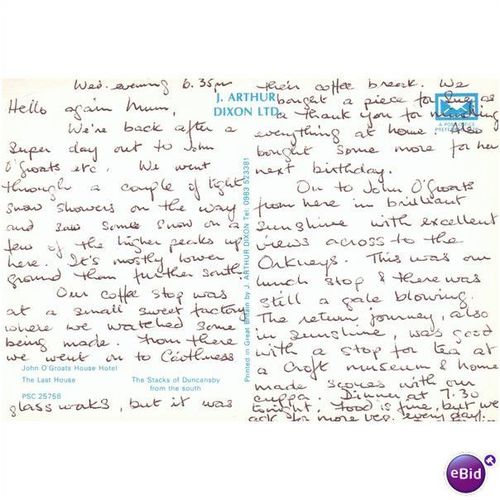 Wed. evening 6.35pm
Hello again Mum,
We're back after a
super day out to John
O'Groats etc. We went
through a couple of light
snow showers on the way
and saw some snow on a
few of the higher peaks up
here. It's mostly lower
ground than further south.
Our coffee stop was
at a small sweet factory
where we watched some
being made. From there
we went on to Caithness
John O'Groats House Hotel
The Last House
The Stacks of Duncansby
from the south
PSC 25758
glassworks, but it was
J. ARTHUR
DIXON LTD
Printed in Great Britain by J. ARTHUR DIXON Tel: 0983 523381
their coffee break. We
bought a piece for as
a thank you for
everything at home. Also
bought some more for her
next birthday.
On to John O'Groats
from here in brilliant
sunshine with excellent
views across to the
Orkneys. This was our
lunch stop & there was
still a gale blowing.
The return journey, also
in sunshine, was good
with a stop for tea at
a croft museum & home
made scones with our
cuppa. Dinner at 7.30
tonight. Food is fine, but we
ask for more veg. every day.
eBid